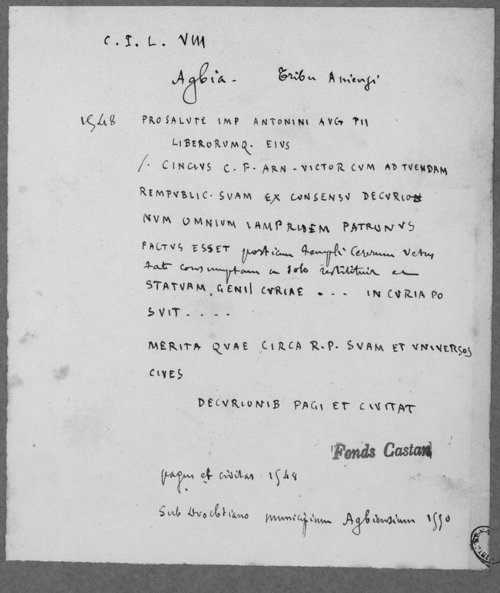 C. I. L. VIII
Agbia - Tribu Arnensi
1548 PRO SALUTE IMP ANTONINI AVG PII
LIBERORUMQ. EIUS
/. CINCIVS C. F. ARN - VICTOR CVM AD TVENDAM
REMPVBLIC. SVAM EX CONSENSV DECVRIO
NVM OMNIVM IAMPRIDEM PATRONVS
FACTVS ESSET porticum templi Cererum vetus
tate consumptam a solo restituit et
STATVAM GENII CVRIAE . . . IN CVRIA PO
SVIT . . . .
MERITA QVAE CIRCA R. P. SVAM ET VNIVERSOS
CIVES
DECVRIONIB PAGI ET CIVITAT
Fonds Castan
pagus et civitas 1548
Sub Diocletiano municipium Agbiensium 1550